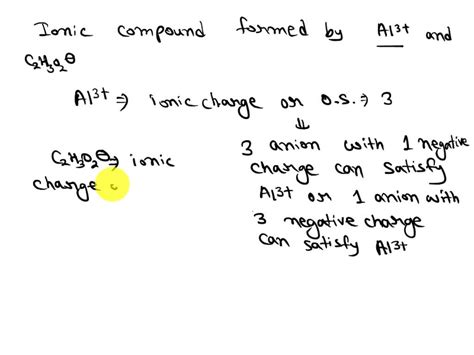 Ionic compound formed by Al³⁺ and
C₂H₃O₂⊖
Al³⁺ ⇒ ionic charge or O.S. ⇒ 3
⇓
3 anion with 1 negative
charge can satisfy
Al³⁺ or 1 anion with
3 negative charge
can satisfy Al³⁺
C₂H₃O₂⊖ ⇒ ionic
charge